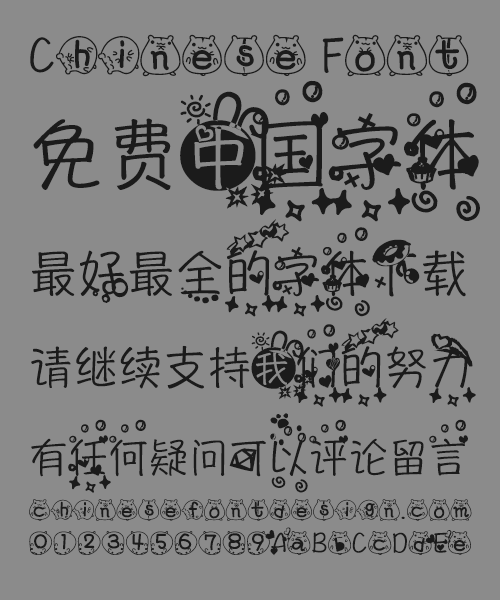 Chinese Font
免费中国字体
最好最全的字体下载
请继续支持我们的努力
有任何疑问可以评论留言
chinesefontdesign.com
0123456789AaBbCcDdEe